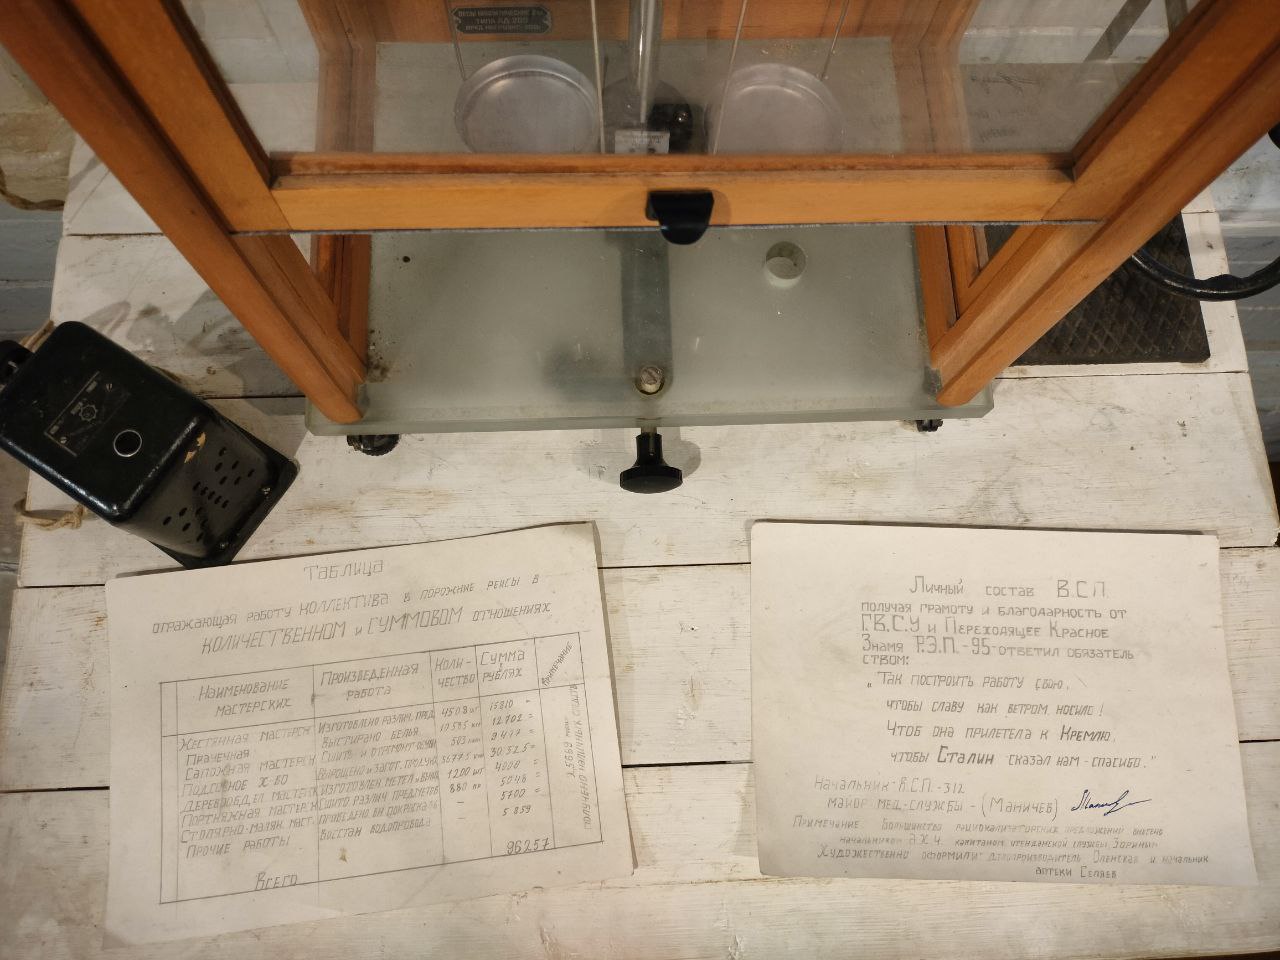 ВЕСЫ АНАЛИТИЧЕСКИЕ
ТИПА АД 200
Таблица
отражающая работу коллектива в порожние рейсы в
количественном и суммовом отношениях
Наименование мастерских
Произведенная работа
Коли-чество
Сумма в рублях
Примечание
Жестянная мастерск Изготовлено различ. пред 4508 шт 15810 =
Прачечная Выстирано белья 12702 =
Сапожная мастерск Сшито и отремонт обуви 503 9477 =
Подсобное х-во Выращено и загот. продук 30525 =
Деревообдел мастерск Изготовлен метел и 1200 шт 4000 =
Портняжная мастерск Сшито различ предметов 880 5048 =
Столярно-маляк. маст. Проведено вн покраска — 5700 =
Прочие работы Восстан водопровода — 5859
получено наличных средств
Всего 96257
Личный состав В.С.П.
получая грамоту и благодарность от
Г.В.С.У и Переходящее Красное
Знамя Р.Э.П.-95-ответил обязатель
ством:
„Так построить работу свою,
чтобы славу как ветром носило!
Чтоб она прилетела к Кремлю,
чтобы Сталин сказал нам-спасибо."
Начальник В.С.П.-312
майор мед.-службы - (Маничев)
Примечание Большинство рационализаторских предложений внесено
начальником А.Х.Ч. капитаном интендантской службы Зориным
Художественно оформили: делопроизводитель Оленская и начальник
аптеки Селяев